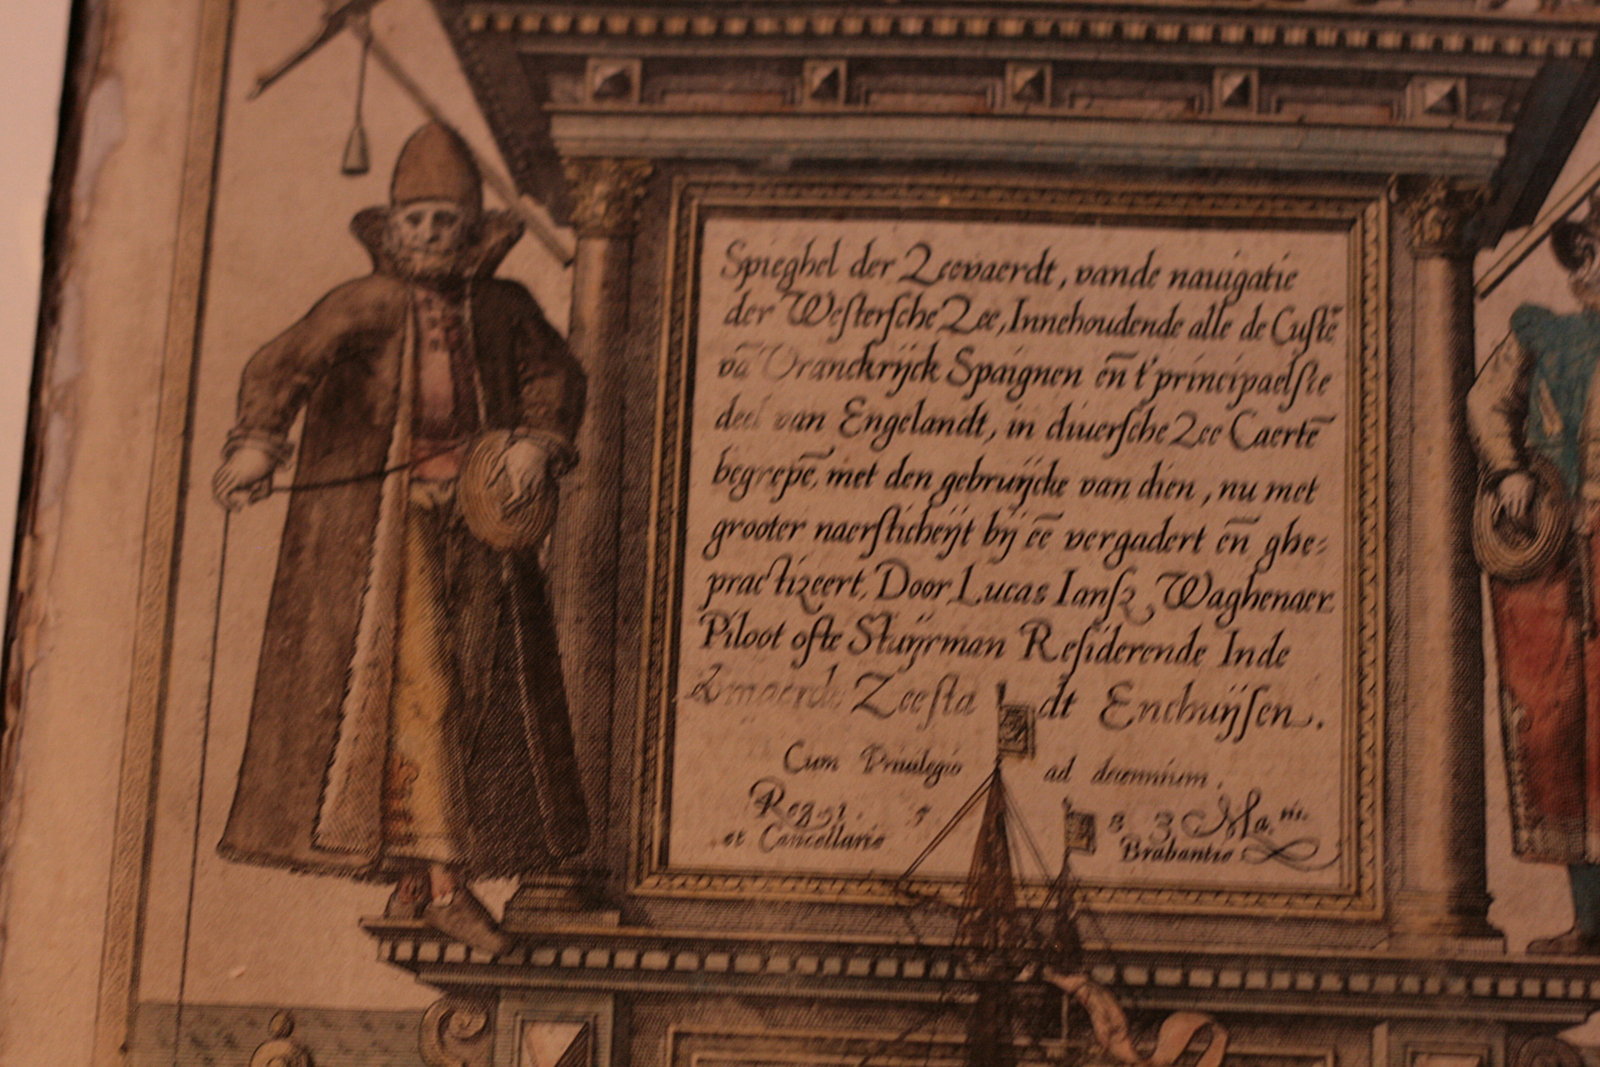 Spieghel der Zeevaerdt, vande nauigatie
der Westersche Zee, Innehoudende alle de Custē
vā Vranckrijck Spaignen en̄ t'principaelste
deel van Engelandt, in diuersche Zee Caertē
begrepē, met den gebruijcke van dien, nu met
grooter naersticheijt bij eē vergadert en̄ ghe=
practizeert, Door Lucas Iansz Waghenaer
Piloot ofte Stuijrman Residerende Inde
Zeestadt Enchuijsen.
Cum Priuilegio ad decennium.
Reg. 5 8 3 Ma.
et Cancellarie Brabantie